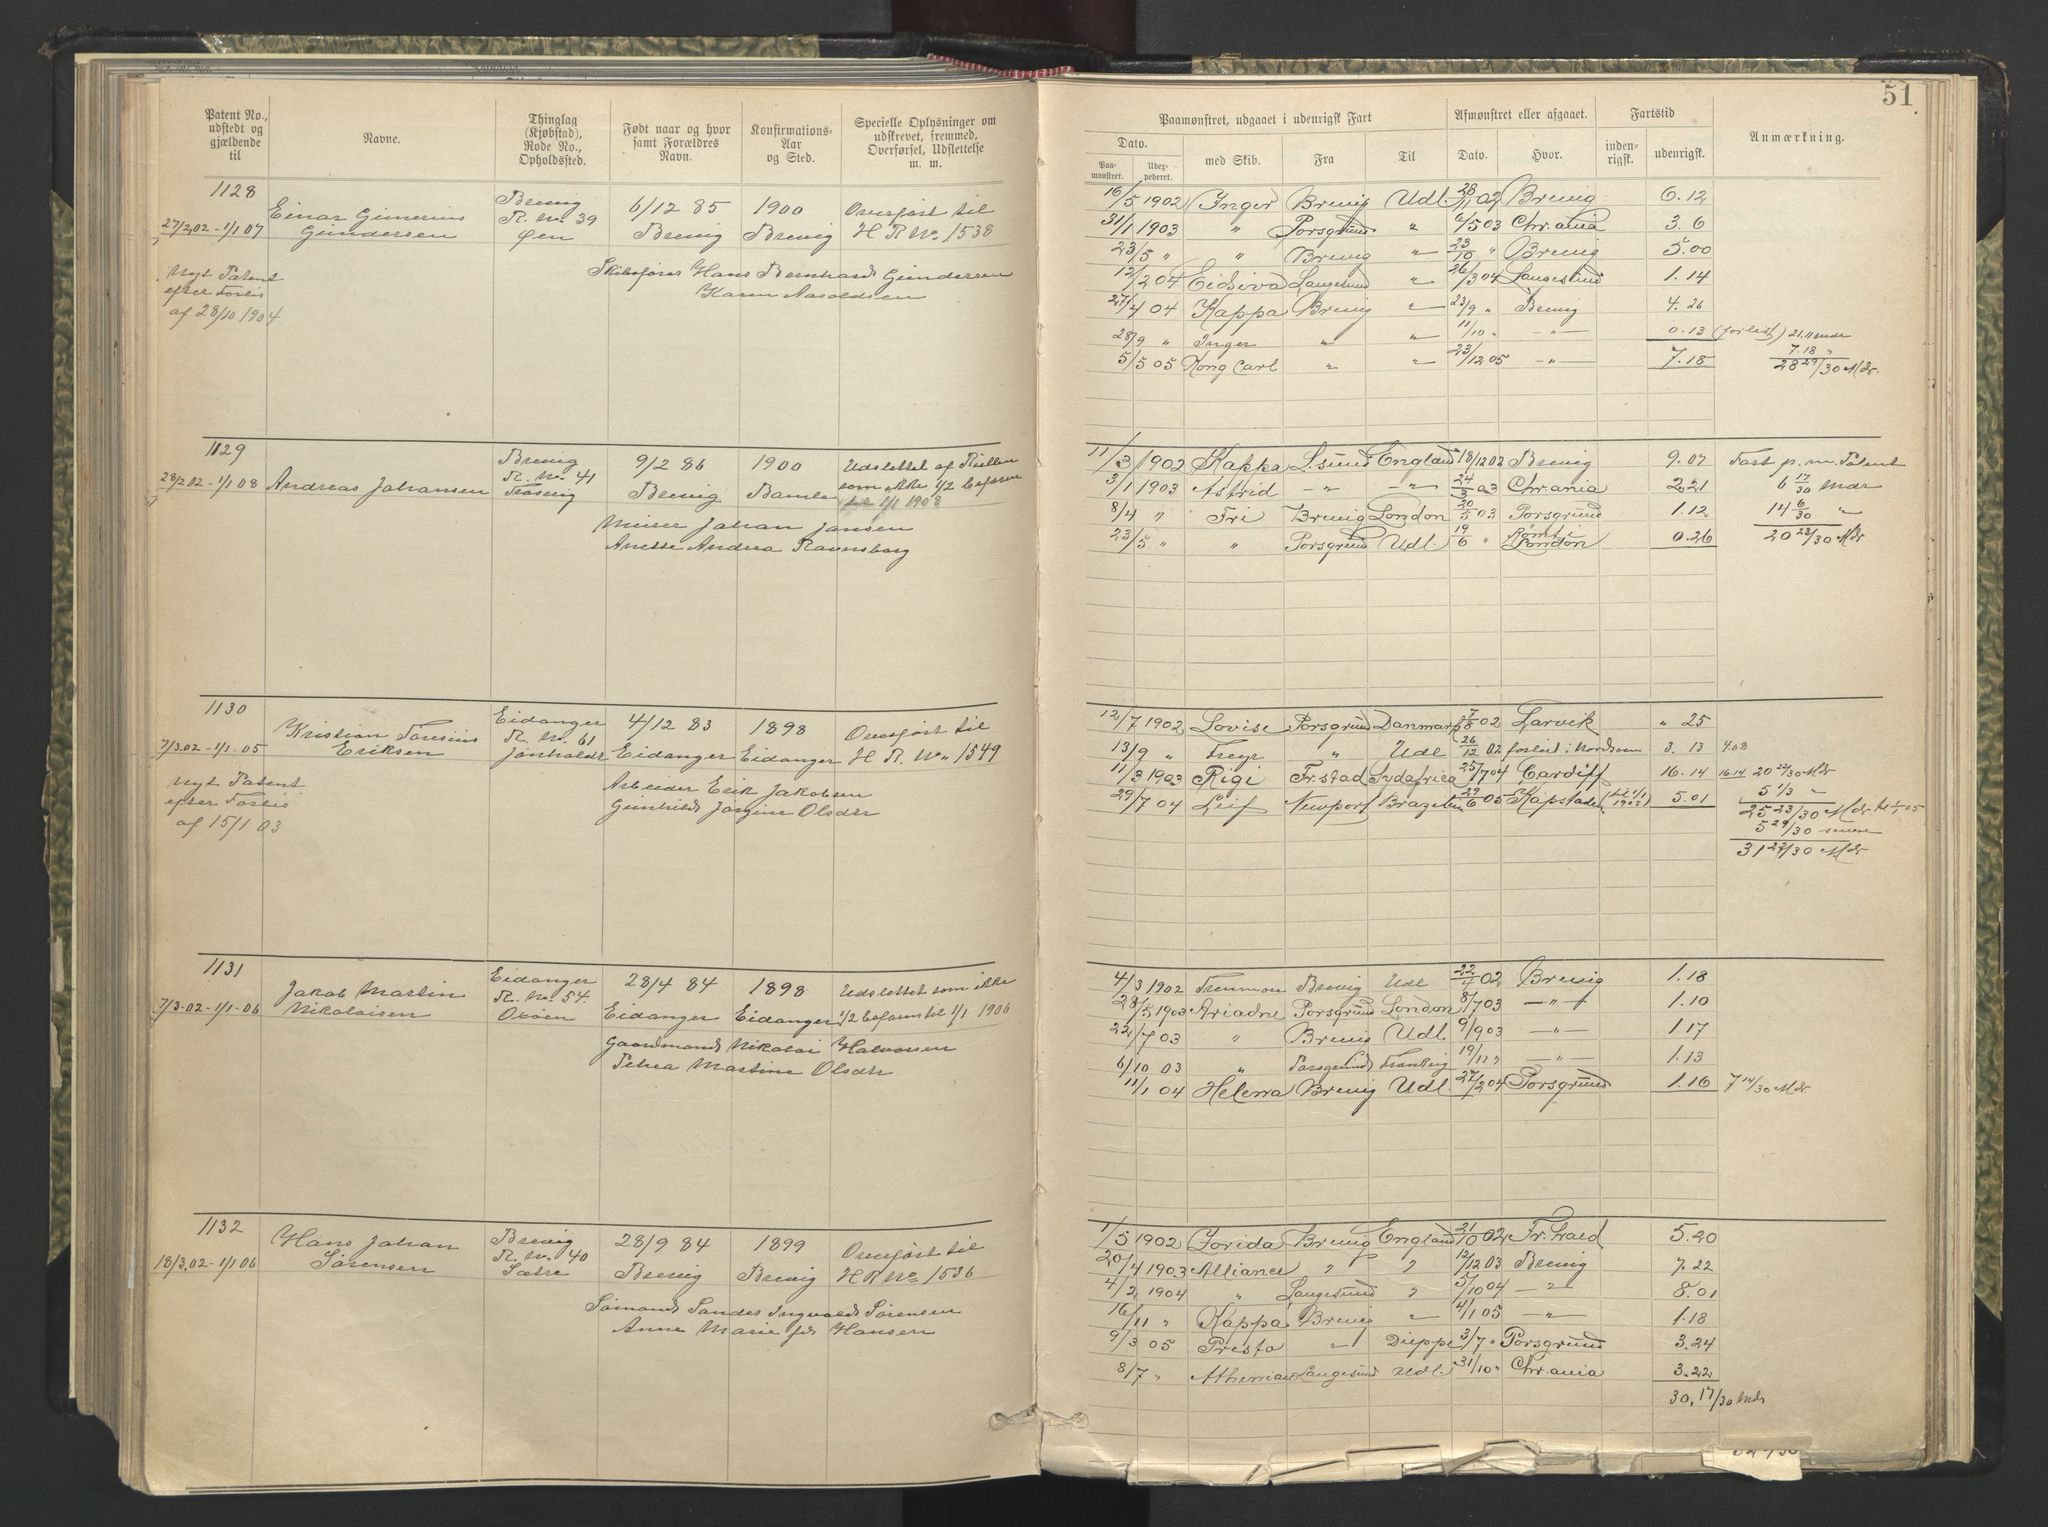 51
Patent No., udstedt og gjældende til
Navne.
Thinglag (Kjøbstad), Rode No., Opholdssted.
Født naar og hvor samt Forældres Navn.
Konfirmations-Aar og Sted.
Specielle Oplysninger om udskrevet, fremmed, Overførsel, Udslettelse m. m.
Paamønstret, udgaaet i udenrigsk Fart
Afmønstret eller afgaaet.
Fartstid
Anmærkning.
Dato.
Paamønstret.
Udexpederet.
med Skib.
Fra
Til
Dato.
Hvor.
indenrigsk.
udenrigsk.
1128
27/2 02 - 1/1 07
Einar Gunerius Gundersen
Brevig R. No. 39 Øen
6/12 85 Brevig
1900 Brevig
Overført til H R No. 1538
Skibsfører Hans Bernhard Gundersen
Karen Aasoldsen
Nyt Patent
efter Forlis
af 28/10 1904
16/5 1902 Inger Brevig Udl. 28/11 02 Brevig 6.12
31/1 1903 " Porsgrund " 6/5 03 Chr.ania 3.6
23/5 " " Brevig " 23/10 " Brevig 5.00
12/2 04 Eidsiva Langesund " 26/3 04 Langesund 1.14
27/4 04 Kappa Brevig " 23/9 " Brevig 4.26
28/9 " Inger " " 11/10 " -"- 0.13 (forlist) 21.11 mdr
5/5 05 Kong Carl " " 23/12 05 -"- 7.18
7.18 "
28 29/30 Mdr.
1129
28/2 02 - 1/1 08
Andreas Johansen
Brevig R. No. 41 Trosvig
9/2 86 Brevig
1900 Bamle
Udslettet af Rullen som ikke 1/2 befaren til 1/1 1908
Murer Johan Jansen
Anette Andrea Ravnsborg
11/3 1902 Kappa L.sund England 18/12 02 Brevig 9.07 Fart p. m. Patent
3/1 1903 Astrid -"- -"- 24/3 03 Chr.ania 2.21 6 17/30 Mdr
8/4 " Fri Brevig London 20/5 03 Porsgrund 1.12 14 6/30 "
23/5 " " Porsgrund Udl. 19/6 " Rømt i London 0.26 20 23/30 Mdr
1130
7/3.02 - 1/1 - 05
Kristian Toresius Eriksen
Eidanger R. No. 61 Jønholdt
4/12 83 Eidanger
1898 Eidanger
Overført til H R. No. 1549
Arbeider Erik Jakobsen
Gunhild Jorgine Olsdtr
Nyt Patent
efter Forlis
af 15/1 03
12/7 1902 Lovise Porsgrund Danmark 7/8 02 Larvik " 25
13/9 " Freyr " Udl 26/12 02 forlist i Nordsøen 3.13 4.08
11/3 1903 Rigi Fr.stad Sydafrica 25/7 04 Cardiff 16.14 16.14 20 22/30 Mdr
29/7 04 Leif Newport Brazilien 29/6 05 Kapstaden (til 1/1 1905) 5.01 5 1/3 "
25 23/30 Mdr til 1/1 05
5 29/30 senere
31 22/30 Mdr
1131
7/3-02 - 1/1 - 06
Jakob Martin Nikolaisen
Eidanger R. No. 54. Oxøen
28/4 84 Eidanger
1898 Eidanger
Udslettet som ikke 1/2 befaren til 1/1 1906
Gaardmand Nikolai Halvorsen
Petrea Martine Olsdtr
4/3 1902 Brevig Udl 22/4 02 Brevig 1.18
28/5 1903 Ariadne Porsgrund London 8/7 03 -"- 1.10
22/7 03 " Brevig Udl 9/9 03 -"- 1.17
6/10 03 " Porsgrund Frankrig 19/11 " -"- 1.13
11/1 04 Helena Brevig Udl. 27/2 04 Porsgrund 1.16 7 14/30 Mdr
1132
18/3.02 - 1/1 06
Hans Johan Sørensen
Brevig R. No. 40 Sætre
28/9 84 Brevig
1899 Brevig
Overført til H R No 1536
Sømand Sander Ingvald Sørensen
Anne Marie fdt Hansen
1/5 1902 Brevig England 21/10 02 Fr.hald 5.20
20/4 1903 Alliance " " 12/12 03 Brevig 7.22
4/2 1904 " Langesund " 5/10 04 -"- 8.01
16/11 " Kappa Brevig " 4/1 05 -"- 1.18
9/3 05 Presto " Dieppe 3/7 " Porsgrund 3.24
8/7 " Athenian Langesund Udl. 31/10 " Chr.ania 3.22
30.17/30 Mdr